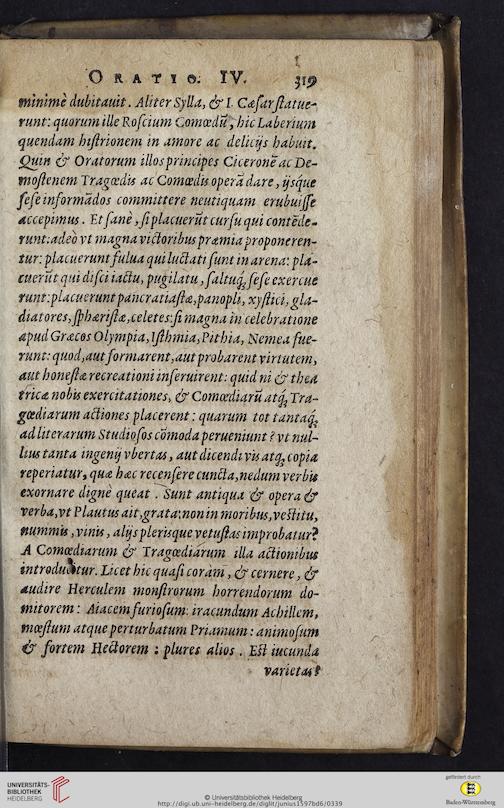 ORATIO. IV. 319
minimè dubitauit. Aliter Sylla, & I. Cæſar ſtatue-
runt: quorum ille Roſcium Comœdū, hic Laberium
quendam hiſtrionem in amore ac delicijs habuit.
Quin & Oratorum illos principes Ciceronē ac De-
moſtenem Tragœdis ac Comœdis operā dare, ijsq́ue
ſeſe informādos committere neutiquam erubuiſſe
accepimus. Et ſanè, ſi placuerūt curſu qui contēde-
runt: adeò vt magna victoribus præmia proponeren-
tur: placuerunt fulua qui luctati ſunt in arena: pla-
cuerūt qui diſci iactu, pugilatu, ſaltuq́; ſeſe exercue
runt: placuerunt pancratiaſtæ, panopli, xyſtici, gla-
diatores, ſphæriſtæ, celetes: ſi magna in celebratione
apud Græcos Olympia, Iſthmia, Pithia, Nemea fue-
runt: quod, aut formarent, aut probarent virtutem,
aut honeſtæ recreationi inſeruirent: quid ni & thea
tricæ nobis exercitationes, & Comœdiarū atq́; Tra-
gœdiarum actiones placerent: quarum tot tantaq́;
ad literarum Studioſos cōmoda perueniunt? vt nul-
lius tanta ingenij vbertas, aut dicendi vis atq́; copia
reperiatur, quæ hæc recenſere cuncta, nedum verbis
exornare dignè queat. Sunt antiqua & opera &
verba, vt Plautus ait, grata: non in moribus, veſtitu,
nummis, vinis, alijs plerisque vetuſtas improbatur?
A Comœdiarum & Tragœdiarum illa actionibus
introducitur. Licet hic quaſi coràm, & cernere, &
audire Herculem monſtrorum horrendorum do-
mitorem: Aiacem furioſum: iracundum Achillem,
mœſtum atque perturbatum Priamum: animoſum
& fortem Hectorem: plures alios. Eſt iucunda
varietas
UNIVERSITÄTS-
BIBLIOTHEK
HEIDELBERG
© Universitätsbibliothek Heidelberg
http://digi.ub.uni-heidelberg.de/diglit/junius1597bd6/0339
gefördert durch
Baden-Württemberg